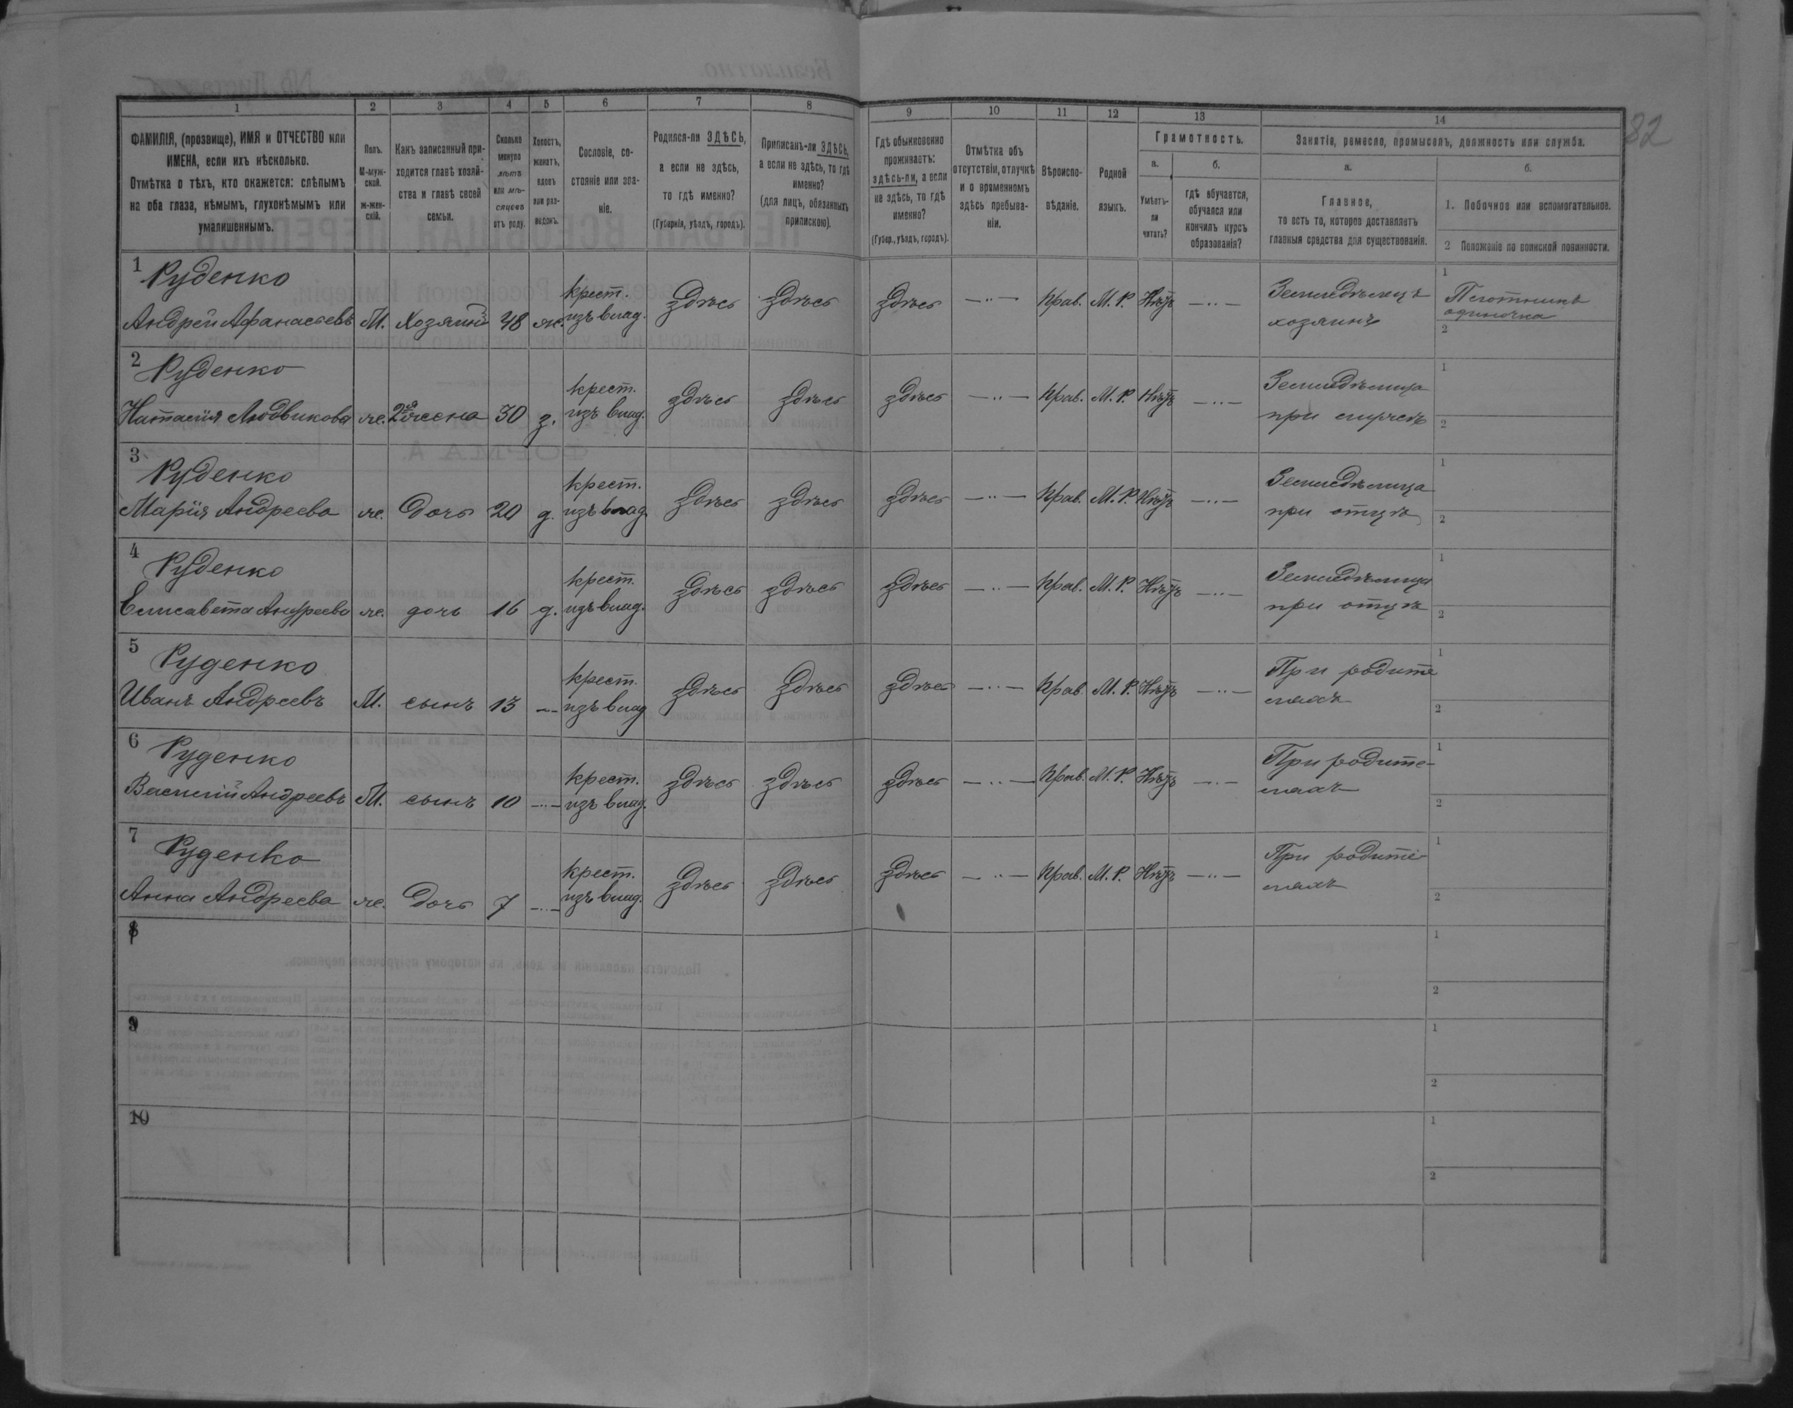 82
1 2 3 4 5 6 7 8 9 10 11 12 13 14
ФАМИЛІЯ, (прозвище), ИМЯ и ОТЧЕСТВО или
ИМЕНА, если ихъ нѣсколько.
Отмѣтка о тѣхъ, кто окажется: слѣпымъ
на оба глаза, нѣмымъ, глухонѣмымъ или
умалишеннымъ.
Полъ.
М-муж-
ской.
ж-жен-
скій.
Какъ записанный при-
ходится главѣ хозяй-
ства и главѣ своей
семьи.
Сколько
минуло
лѣтъ
или мѣ-
сяцевъ
отъ роду.
Холостъ,
женатъ,
вдовъ
или раз-
веденъ.
Сословіе, со-
стояніе или зва-
ніе.
Родился-ли ЗДѢСЬ,
а если не здѣсь,
то гдѣ именно?
(Губернія, уѣздъ, городъ).
Приписанъ-ли ЗДѢСЬ,
а если не здѣсь, то гдѣ
именно?
(для лицъ, обязанныхъ
припискою).
Гдѣ обыкновенно
проживаетъ:
здѣсь-ли, а если
не здѣсь, то гдѣ
именно?
(Губер., уѣздъ, городъ).
Отмѣтка объ
отсутствіи, отлучкѣ
и о временномъ
здѣсь пребыва-
ніи.
Вѣроиспо-
вѣданіе.
Родной
языкъ.
Грамотность.
а.
Умѣетъ-
ли
читать?
б.
гдѣ обучается,
обучался или
кончилъ курсъ
образованія?
Занятія, ремесло, промыселъ, должность или служба.
а.
Главное,
то есть то, которое доставляетъ
главныя средства для существованія.
б.
1. Побочное или вспомогательное.
2 Положеніе по воинской повинности.
1 Руденко крест. здѣсь здѣсь здѣсь — Прав. М. Р. Нѣтъ — Земледѣлецъ 1 Плотникъ
Андрей Афанасьевъ М. Хозяинъ 48 ж. изъ влад. хозяинъ одиночка
2
2 Руденко крест. здѣсь здѣсь здѣсь — Прав. М. Р. Нѣтъ — Земледѣлица 1
Наталія Людвикова ж. 2ая жена 30 з. изъ влад. при мужѣ 2
3 Руденко крест. здѣсь здѣсь здѣсь — Прав. М. Р. Нѣтъ — Земледѣлица 1
Марія Андреева ж. Дочь 20 д. изъ влад. при отцѣ 2
4 Руденко крест. здѣсь здѣсь здѣсь — Прав. М. Р. Нѣтъ — Земледѣлица 1
Елисавета Андреева ж. дочь 16 д. изъ влад. при отцѣ 2
5 Руденко крест. здѣсь здѣсь здѣсь — Прав. М. Р. Нѣтъ — При родите 1
Иванъ Андреевъ М. сынъ 13 — изъ влад. ляхъ 2
6 Руденко крест. здѣсь здѣсь здѣсь — Прав. М. Р. Нѣтъ — При родите- 1
Василій Андреевъ М. сынъ 10 — изъ влад. ляхъ 2
7 Руденко крест. здѣсь здѣсь здѣсь — Прав. М. Р. Нѣтъ — При родите- 1
Анна Андреева ж. Дочь 7 — изъ влад. ляхъ 2
8 1
2
9 1
2
10 1
2